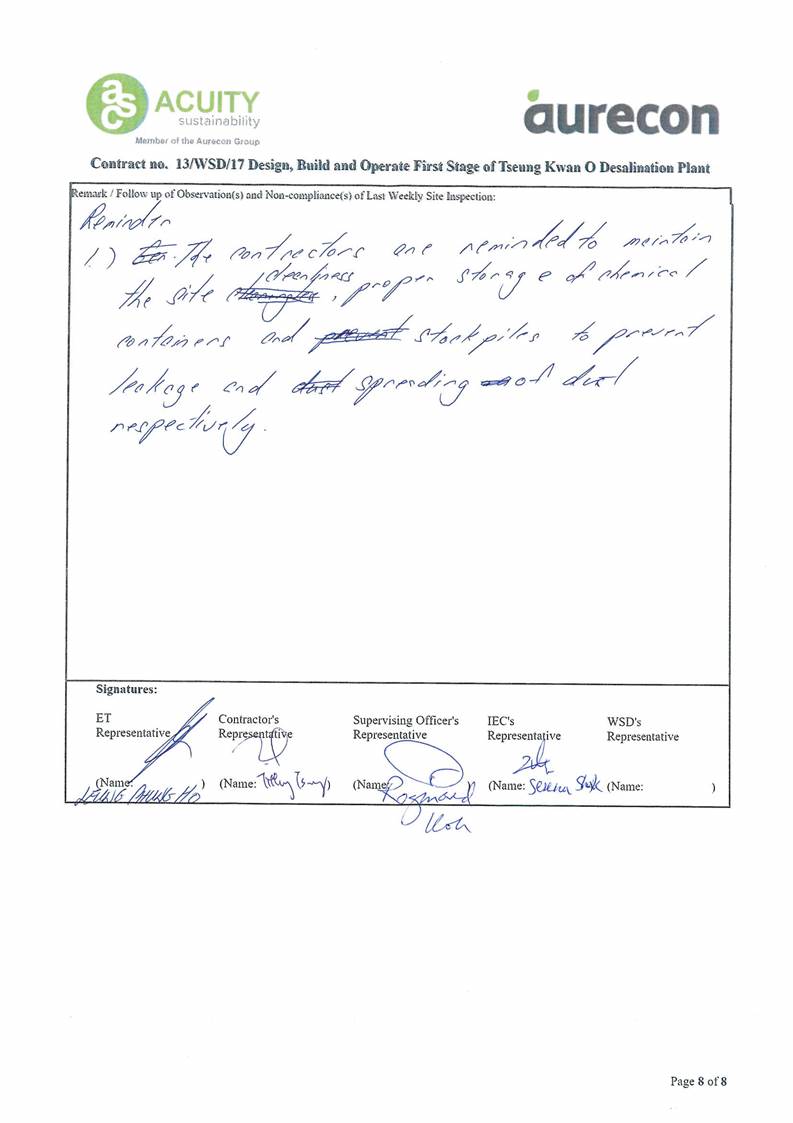 asc ACUITY
sustainability
Member of the Aurecon Group
aurecon
Contract no. 13/WSD/17 Design, Build and Operate First Stage of Tseung Kwan O Desalination Plant
Remark / Follow up of Observation(s) and Non-compliance(s) of Last Weekly Site Inspection:
Reminder
1.) The contractors are reminded to maintain
the site cleanliness, proper storage of chemical
containers and prevent stockpiles to prevent
leakage and dust spreading of dust
respectively.
Signatures:
ET Representative
Contractor's Representative
Supervising Officer's Representative
IEC's Representative
WSD's Representative
(Name: LEUNG CHUNG HO )
(Name: )
(Name: Rosamund Koh
(Name: Serena Shek
(Name: )
Page 8 of 8